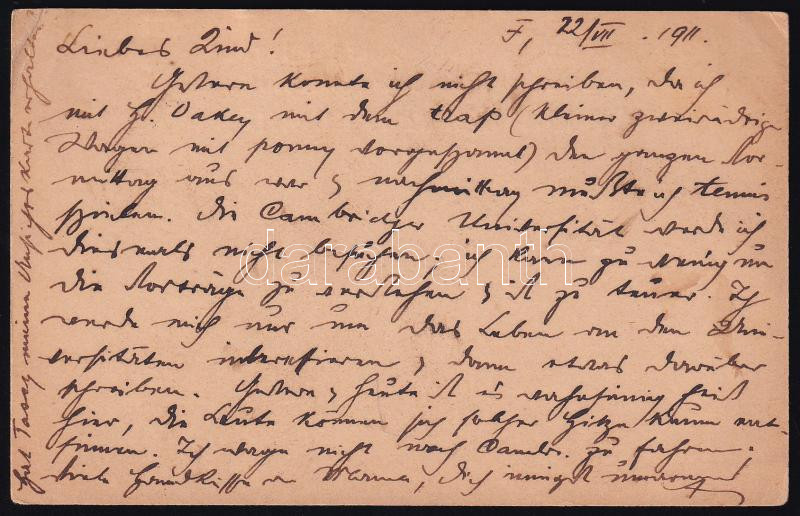 F, 22/VII. 1911.
Liebes Kind!
Gestern konnte ich nicht schreiben, da ich
mit H. Oakey mit dem trap (kleiner zweirädrige
Wagen mit pony vorgespannt) den ganzen Vor-
mittag aus war & nachmittag mußte ich tennis
spielen. Die Cambridger Universität werde ich
diesmals nicht besuchen, ich kann zu wenig um
die Vorträge zu verstehen & ist zu teuer. Ich
werde mich nur um das Leben an den Uni-
versitäten interessieren & dann etwas darüber
schreiben. Gestern & heute ist es wahnsinnig heiß
hier, die Leute können sich solcher Hitze kaum ent-
sinnen. Ich wage nicht nach Cambr. zu fahren.
Viele Handküsse an Mama, Dich innigst umarmend
Hat Tassy meine Ansichtskarte erhalten?
darabanth